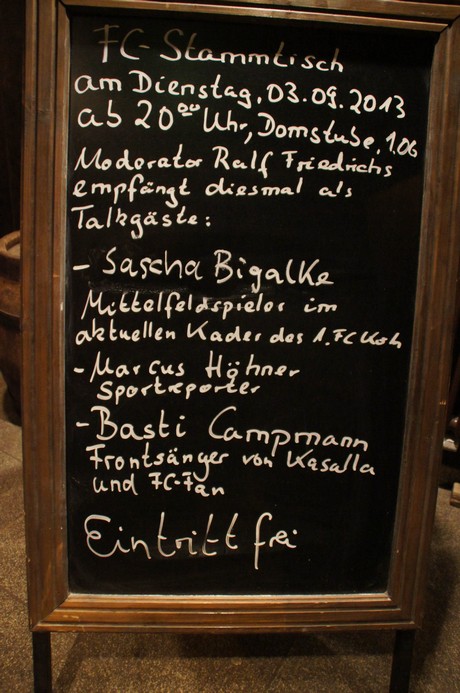 FC-Stammtisch
am Dienstag, 03.09.2013
ab 20⁰⁰ Uhr, Domstube, 1.OG
Moderator Ralf Friedrichs
empfängt diesmal als
Talkgäste:
- Sascha Bigalke
Mittelfeldspieler im
aktuellen Kader des 1. FC Köln
- Marcus Höhner
Sportreporter
- Basti Campmann
Frontsänger von Kasalla
und FC-Fan
Eintritt frei